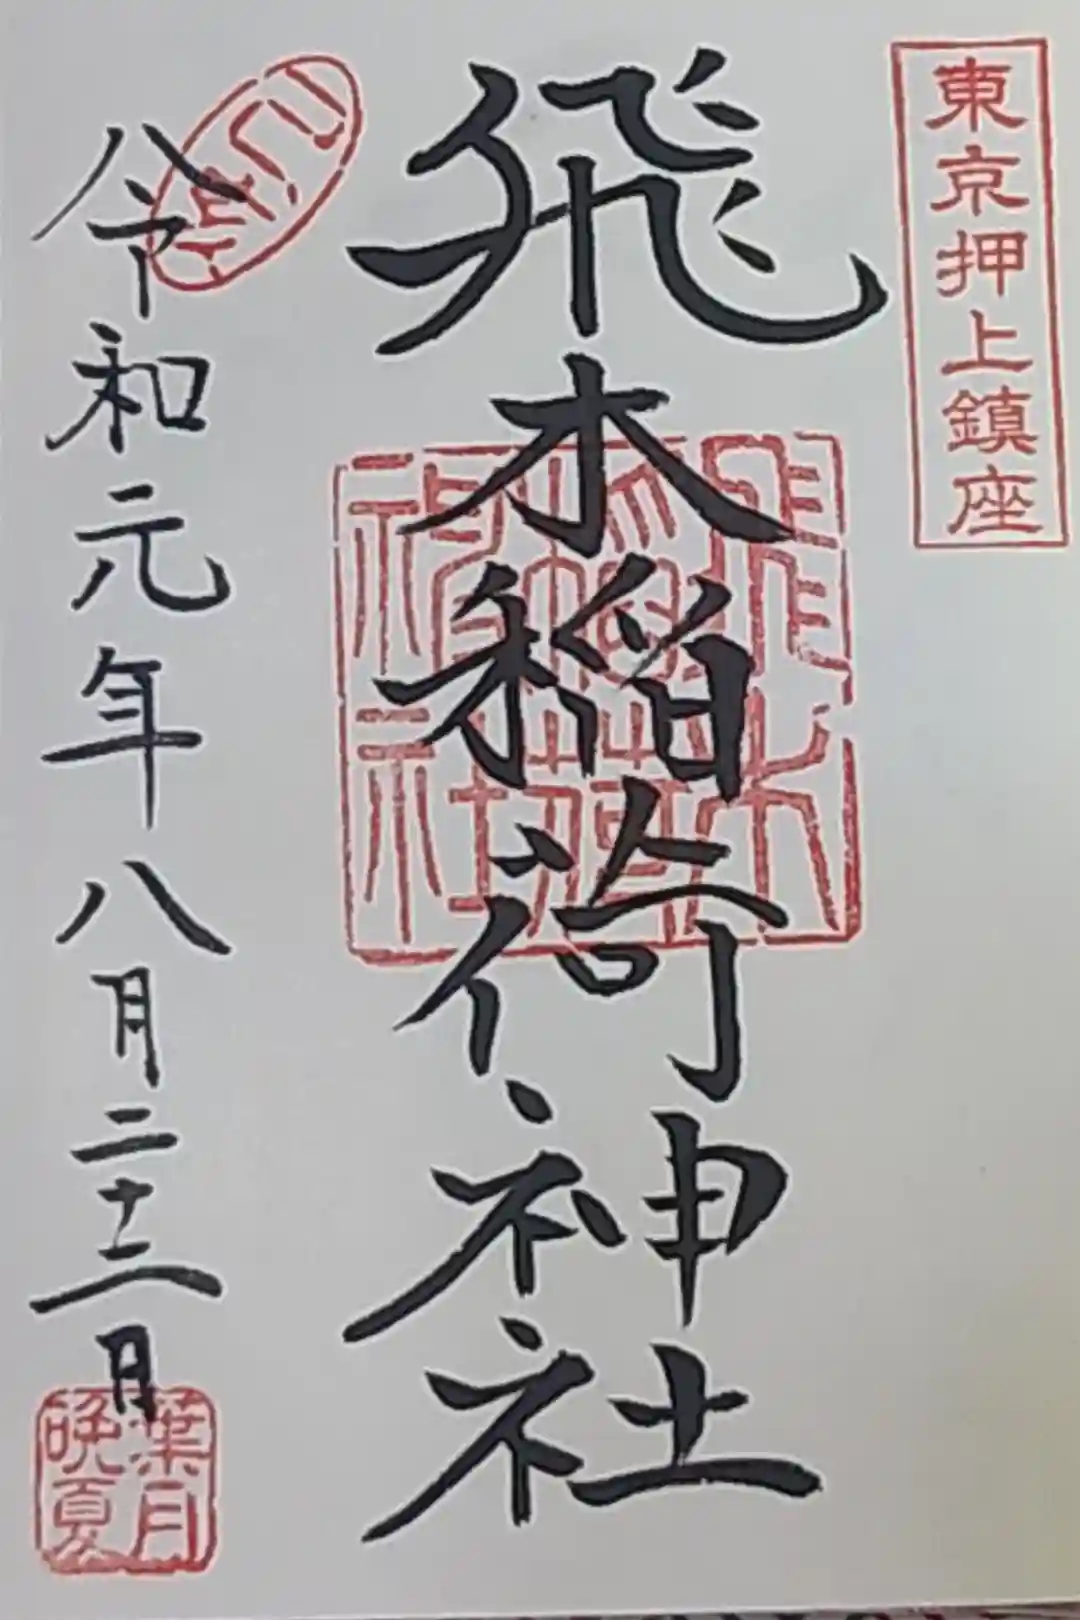 東京押上鎮座
飛木稲荷神社
飛木
稲荷
神社
令和元年八月二十二日
葉月
晩夏